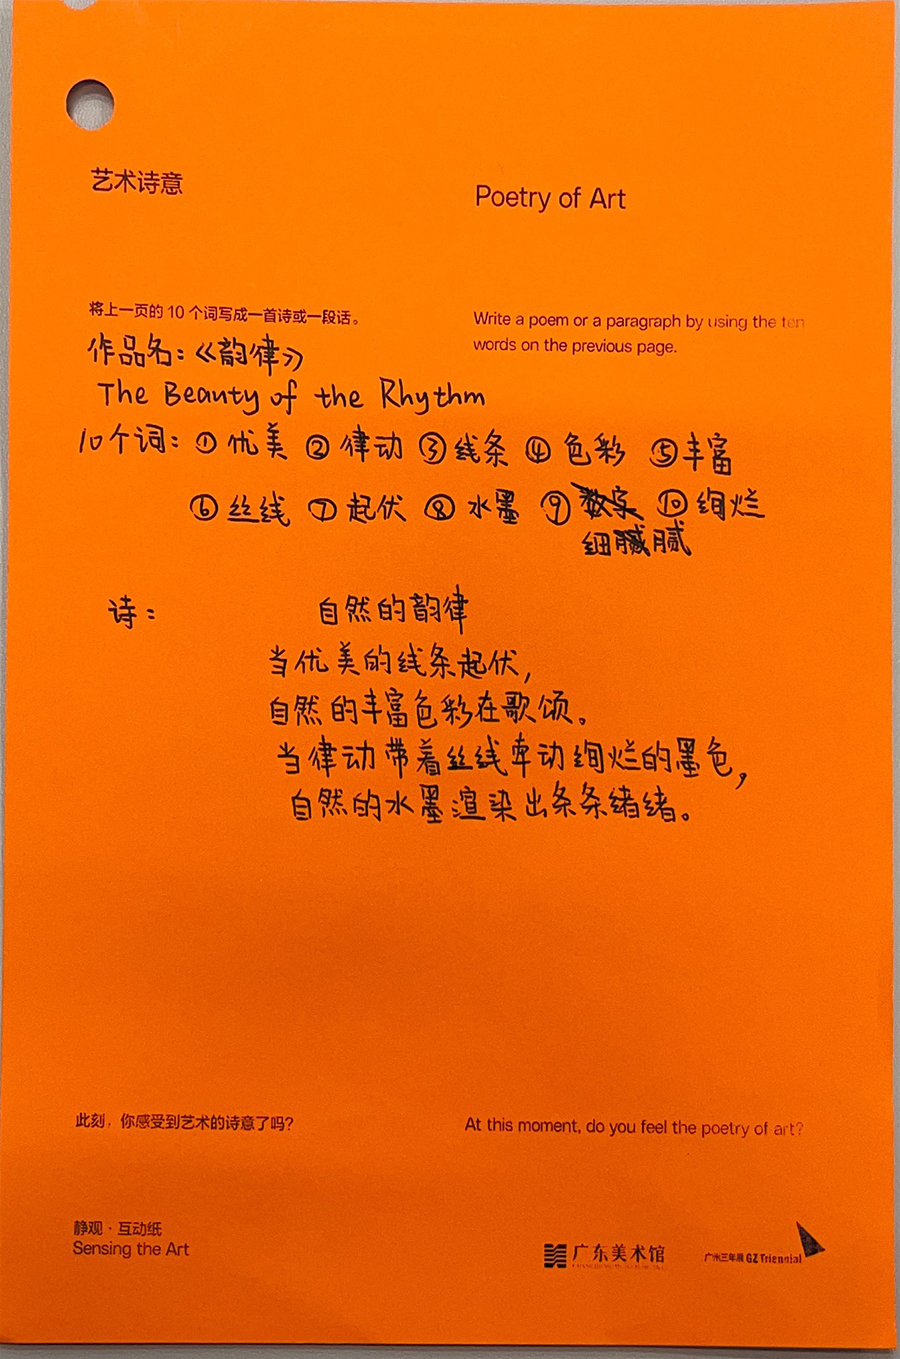 艺术诗意
Poetry of Art
将上一页的 10 个词写成一首诗或一段话。
Write a poem or a paragraph by using the ten
words on the previous page.
作品名：《韵律》
The Beauty of the Rhythm
10个词：①优美 ②律动 ③线条 ④色彩 ⑤丰富
⑥丝线 ⑦起伏 ⑧水墨 ⑨ ⑩绚烂
细腻
诗：
自然的韵律
当优美的线条起伏，
自然的丰富色彩在歌颂。
当律动带着丝线牵动绚烂的墨色，
自然的水墨渲染出条条绪绪。
此刻，你感受到艺术的诗意了吗？
At this moment, do you feel the poetry of art?
静观·互动纸
Sensing the Art
广东美术馆
广州三年展 GZ Triennial